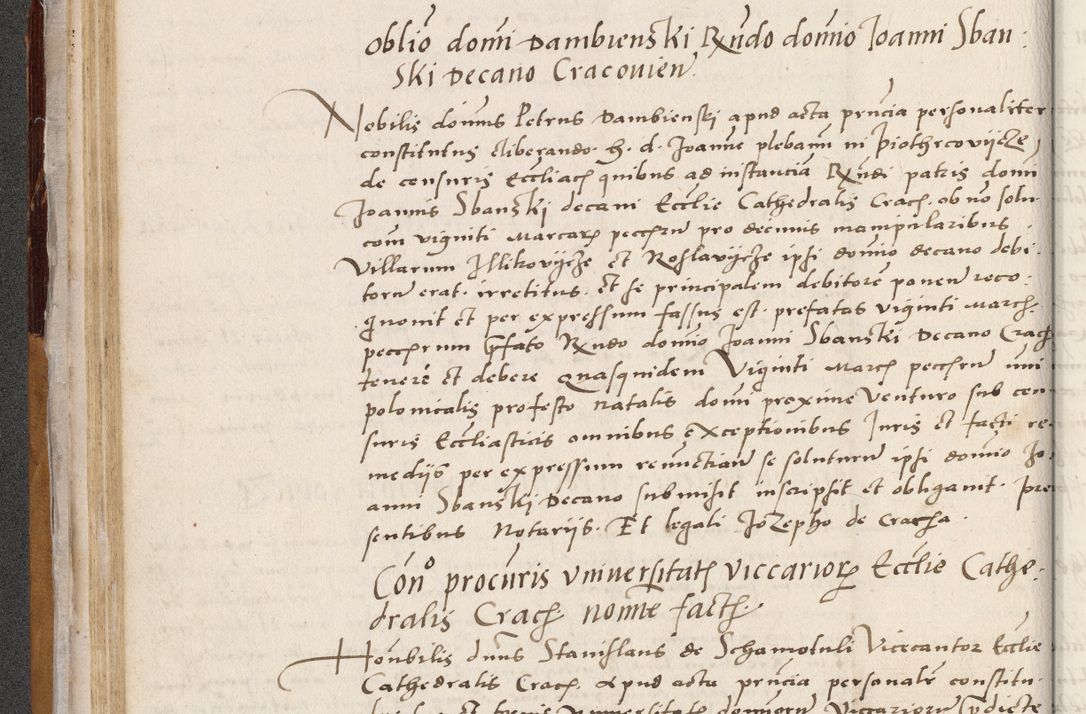 Oblio domi Dambienski Rndo domio Joanni Sban:
ski Decano Cracovien.
Nobilis domus Petrus Dambienski apud acta prncia personaliter
constitutus cliberando. h. d. Joanne plebann in Piothrcovijcze
de censuris Eccliach quibus ad instanciam Rndi patris domi
Joannis Sbanski decani Ecclie Cathedralis Crach. ob no solu
com viginti Marcarh pecchrn pro decimis manipularibus
Villarum Illikovijcze et Roslavijcze ipsi domio decano debi
torn erat. irretitus. Et se principalem debitore ponen reco:
gnovit et per expressum fassus est. prefatas viginti March.
pecchrum pfato Rndo domio Joanni Sbanski Decano Crach
tenere et debere Quasquidem Viginti March pecchrn nni
polonicalis profesto Natalis domi proxime Venturo sub cen
suris Eccliasticis omnibus exceptionibus Juris et facti re
medijs per expressum renuctian se soluturn ipsi domio Jo
anni Sbanski Decano submisit inscripsit et obligauit. Pre
sentibus Notarijs. Et legali Jozepho de Cracha.
Con° procuris universitath viccariorh Ecclie Cathe-
dralis Crach nomie facth.
Honbilis dnns Stanislaus de Schamotuli Vicecantor Ecclie
Cathedralis Crach. apud acta prncia personalr constitu-
domiorum Viccariorum pdicte